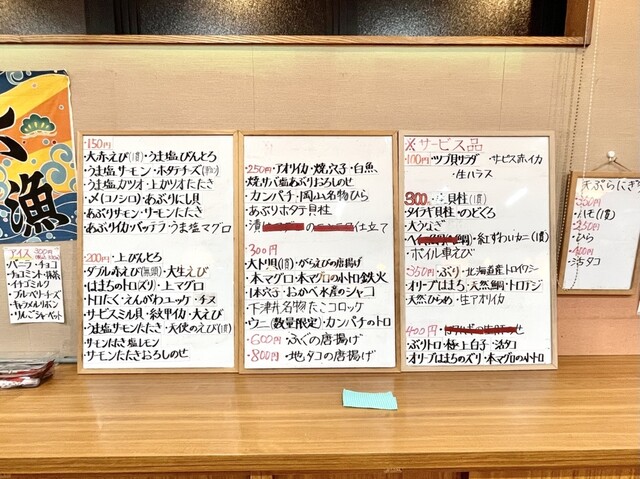 漁
アイス 300円
バニラ・チョコ
チョコミント・抹茶
イチゴミルク
ブルーベリーチーズ
キャラメルリボン
りんごシャーベット
150円
・大赤えび(1貫)・うま塩びんとろ
うま塩サーモン・ホタテチーズ
うま塩カツオ・上カツオたたき
・〆(コノシロ)・あぶりにし貝
あぶりサーモン・リモーンたたき
あぶりイカバッテラ・うま塩マグロ
200円・上びんとろ
ダブル赤えび(無頭)・大生えび
はまちのトロズリ・上マグロ
トロたく・えんがわユッケ・チヌ
サービスミル貝・紋甲イカ・大えび
うま塩サーモンたたき・天使のえび(1貫)
サーモンたたき塩レモン
サーモンたたきおろしのせ
250円・アオリイカ・焼穴子・白魚
焼サバ塩あぶりおろしのせ
・カンパチ・岡山名物ひら
・あぶりホタテ貝柱
・漬 仕立て
300円
・大トリ貝(1貫)・がらえびの唐揚げ
・本マグロ・本マグロの小トロ鉄火
・1本穴子・おかべ水産のシャコ
・下津井名物たこコロッケ
・ウニ(数量限定)・カンパチのトロ
600円・ふぐの唐揚げ
800円・地タコの唐揚げ
※サービス品
100円・ツブ貝サラダ・サービス赤イカ
・生ハラス
300円・貝柱(1貫)
タイラギ貝柱・のどぐろ
・大うなぎ
・紅ずわいカニ(1貫)
・ボイル車えび
350円・ぶり・北海道産トロイワシ
・オリーブはまち・天然鯛・トロアジ
・天然ひらめ・生アオリイカ
400円
・ぶりトロ・極上白子・活タコ
・オリーブはまちのズリ・本マグロの小トロ
天ぷらにぎり
350円
・ハモ(1貫)
250円
・ひら
・活タコ